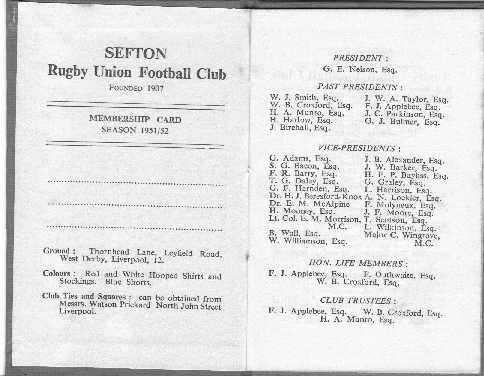 SEFTON
Rugby Union Football Club
FOUNDED 1907
MEMBERSHIP CARD
SEASON 1951/52
Ground : Thornhead Lane, Leyfield Road,
West Derby, Liverpool, 12.
Colours : Red and White Hooped Shirts and
Stockings. Blue Shorts.
Club Ties and Squares : can be obtained from
Messrs. Watson Prickard North John Street
Liverpool.
PRESIDENT :
G. E. Nelson, Esq.
PAST PRESIDENTS :
W. J. Smith, Esq. J. W. A. Taylor, Esq.
W. B. Croxford, Esq. F. J. Applebee, Esq.
H. A. Munro, Esq. J. C. Parkinson, Esq.
H. Harlow, Esq. G. J. Bulmer, Esq.
J. Birchall, Esq.
VICE-PRESIDENTS :
G. Adams, Esq. J. B. Alexander, Esq.
S. G. Bacon, Esq. J. W. Barker, Esq.
F. R. Barry, Esq. H. F. P. Bayliss, Esq.
T. G. Daley, Esq. G. Graley, Esq.
G. F. Harnden, Esq. L. Harrison, Esq.
Dr. H. J. Beresford-Knox A. N. Lockier, Esq.
Dr. E. M. McAlpine F. Molyneux, Esq.
H. Mooney, Esq. J. F. Moore, Esq.
Lt. Col. E. M. Morrison, T. Samson, Esq.
M.C. L. Wilkinson, Esq.
B. Wall, Esq. Major C. Wingrove,
W. Williamson, Esq. M.C.
HON. LIFE MEMBERS :
F. J. Applebee, Esq. F. Outhwaite, Esq.
W. B. Croxford, Esq.
CLUB TRUSTEES :
F. J. Applebee, Esq. W. B. Croxford, Esq.
H. A. Munro, Esq.